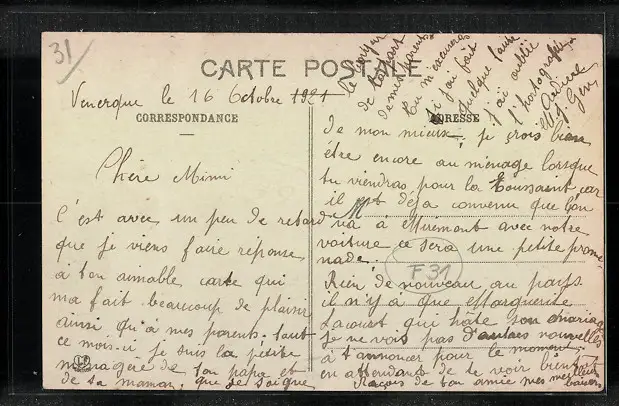 31
CARTE POSTALE
Venerque le 16 Octobre 1921
CORRESPONDANCE
Chère Mimi
C'est avec un peu de retard
que je viens faire réponse
à ton aimable carte qui
ma fait beaucoup de plaisir
ainsi qu'à mes parents. tout
ce mois-ci je suis la petite
ménagère de ton papa et
de ta maman, que je soigne
ADRESSE
de mon mieux. je crois bien
être encore au ménage lorsque
tu viendras pour la Toussaint car
il est déjà convenu que l'on
va à Miremont avec notre
voiture ce sera une petite prome
nade.
F31
Rien de nouveau au pays
il n'y à que Marguerite
Lacourt qui hâte son mariage
je ne vois pas d'autres nouvelles
à t'annoncer pour le moment
en attendant de te voir bientôt
Reçois de ton amie mes meilleurs
baisers
le bonjour
de la part
de mes parents
Tu m'excuseras
si j'ai fait
quelque faute
j'ai oublié
l'orthographe